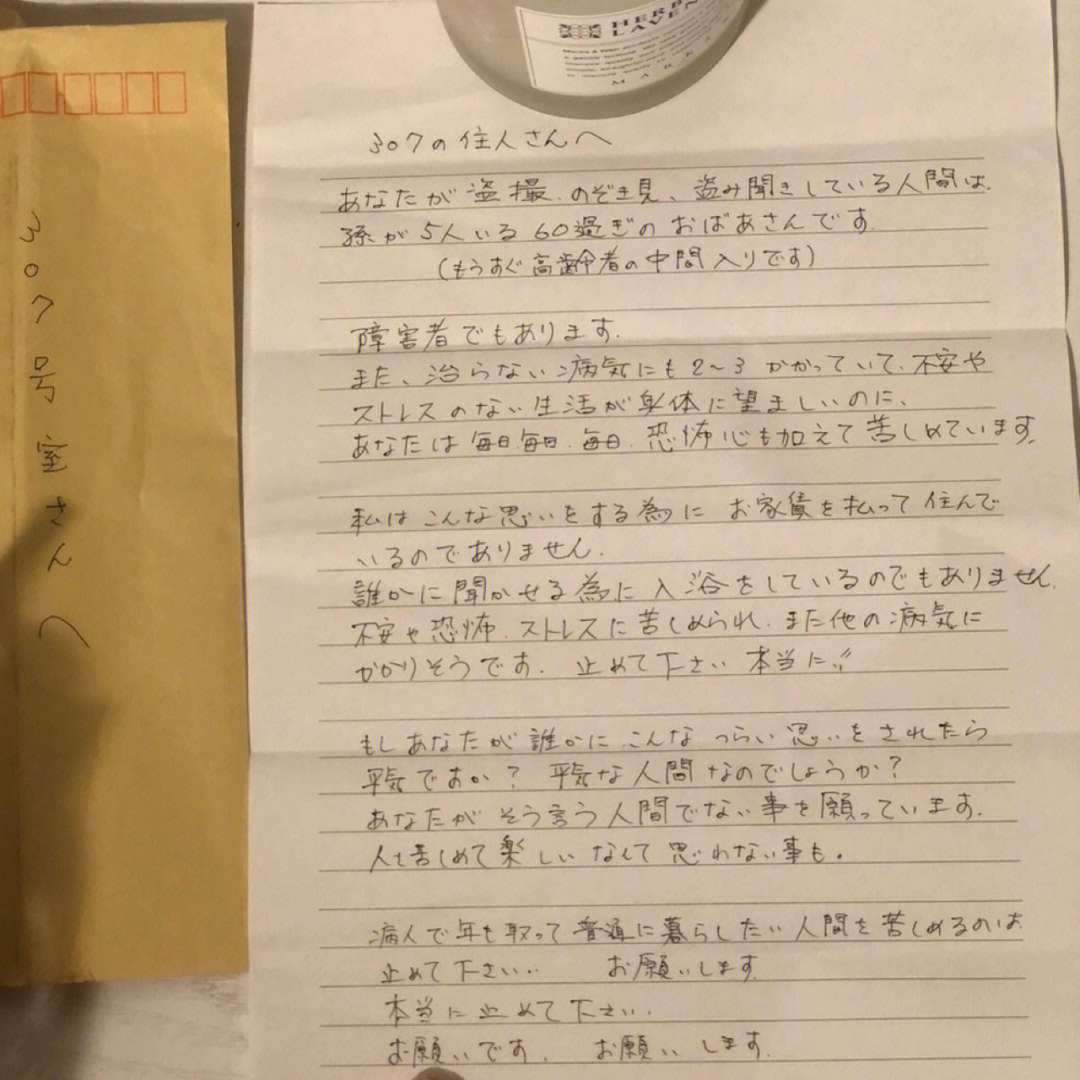 307号室さんへ
HERB
LAVEN
MARK
307の住人さんへ
あなたが盗撮、のぞき見、盗み聞きしている人間は、
孫が5人いる60過ぎのおばあさんです。
(もうすぐ高齢者の中間入りです)
障害者でもあります。
また、治らない病気にも2~3かかっていて、不安や
ストレスのない生活が身体に望ましいのに、
あなたは毎日、毎日、毎日、恐怖心も加えて苦しめています。
私はこんな思いをする為にお家賃を払って住んで
いるのでありません。
誰かに聞かせる為に入浴をしているのでもありません。
不安や恐怖、ストレスに苦しめられ、また他の病気に
かかりそうです。止めて下さい本当に!!
もしあなたが誰かにこんなつらい思いをされたら
平気ですか?平気な人間なのでしょうか?
あなたがそう言う人間でない事を願っています。
人を苦しめて楽しいなんて思わない事も。
病人で年を取って普通に暮らしたい人間を苦しめるのは
止めて下さい‥ お願いします。
本当に止めて下さい。
お願いです、お願いします。